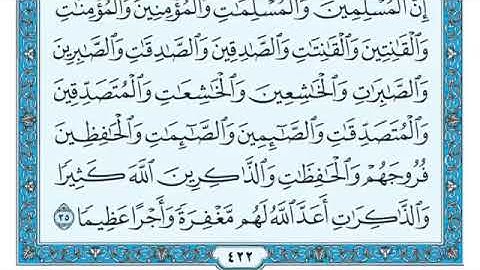 إِنَّ ٱلْمُسْلِمِينَ وَٱلْمُسْلِمَٰتِ وَٱلْمُؤْمِنِينَ وَٱلْمُؤْمِنَٰتِ
وَٱلْقَٰنِتِينَ وَٱلْقَٰنِتَٰتِ وَٱلصَّٰدِقِينَ وَٱلصَّٰدِقَٰتِ وَٱلصَّٰبِرِينَ
وَٱلصَّٰبِرَٰتِ وَٱلْخَٰشِعِينَ وَٱلْخَٰشِعَٰتِ وَٱلْمُتَصَدِّقِينَ
وَٱلْمُتَصَدِّقَٰتِ وَٱلصَّٰٓئِمِينَ وَٱلصَّٰٓئِمَٰتِ وَٱلْحَٰفِظِينَ
فُرُوجَهُمْ وَٱلْحَٰفِظَٰتِ وَٱلذَّٰكِرِينَ ٱللَّهَ كَثِيرًا
وَٱلذَّٰكِرَٰتِ أَعَدَّ ٱللَّهُ لَهُم مَّغْفِرَةً وَأَجْرًا عَظِيمًا ٣٥
٤٢٢